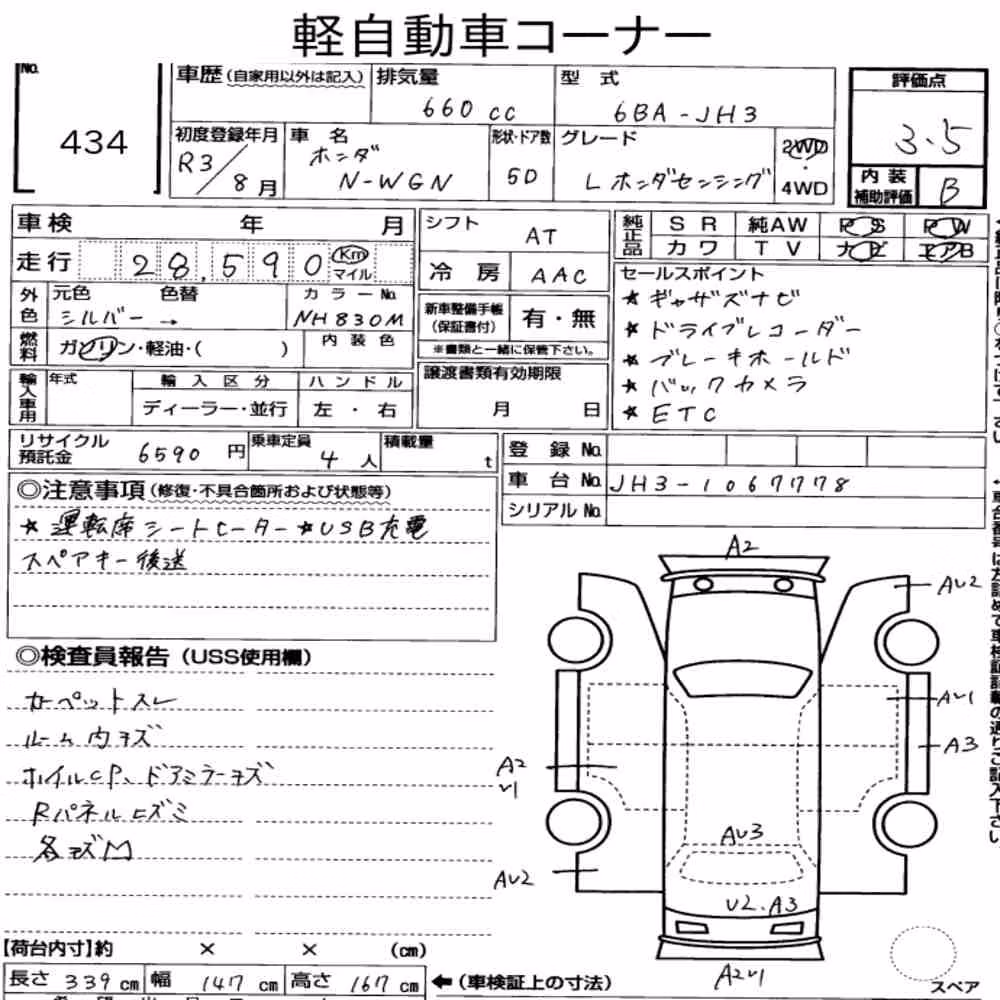 軽自動車コーナー
No.
434
車歴(自家用以外は記入)
排気量
660 cc
型 式
6BA-JH3
評価点
3.5
初度登録年月
R3/8月
車 名
ホンダ
N-WGN
形状・ドア数
5D
グレード
L ホンダセンシング
2WD
・
4WD
内装
補助評価
B
車検 年 月
シフト
AT
純正品
SR 純AW PS PW
カワ TV ナビ エアB
走行 28,590 Km
マイル
冷房 AAC
セールスポイント
★ ギャザズナビ
★ ドライブレコーダー
★ ブレーキホールド
★ バックカメラ
★ ETC
外色
元色 色替
シルバー →
カラーNo.
NH830M
新車整備手帳
(保証書付)
有・無
※書類と一緒に保管下さい。
燃料
ガソリン・軽油・( )
内装色
輸入車用
年式
輸入区分
ディーラー・並行
ハンドル
左・右
譲渡書類有効期限
月 日
リサイクル
預託金
6590 円
乗車定員
4 人
積載量
t
登録 No.
車台 No. JH3-1067778
シリアル No.
◎注意事項(修復・不具合箇所および状態等)
★ 運転席シートヒーター ★USB充電
スペアキー後送
◎検査員報告(USS使用欄)
カーペットスレ
ルーム内キズ
ホイルCP、ドアミラーキズ
Rパネルヒズミ
各キズM
A2
AU2
AU1
A3
A2
U1
AU3
AU2
U2.A3
A2U1
スペア
【荷台内寸】約 × × (cm)
長さ 339 cm 幅 147 cm 高さ 167 cm
←(車検証上の寸法)